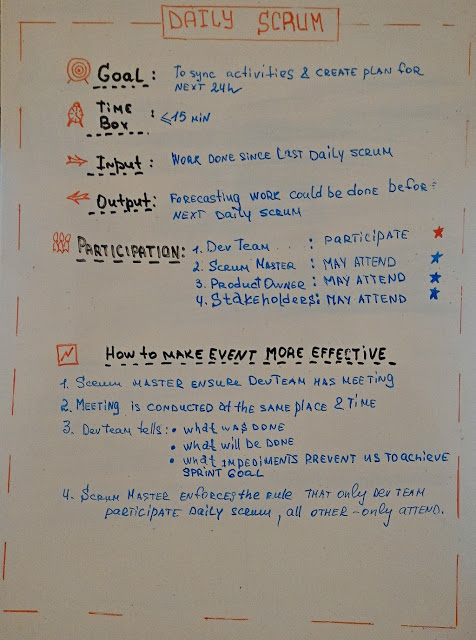 DAILY SCRUM
Goal: To sync activities & CREATE PLAN FOR
NEXT 24h
TIME
Box: ≤15 MIN
Input: WORK DONE SINCE LAST DAILY SCRUM
Output: FORECASTING WORK could be done befor
NEXT DAILY SCRUM
PARTICIPATION: 1. Dev Team : PARTICIPATE
2. SCRUM MASTER : MAY ATTEND
3. PRODUCT OWNER : MAY ATTEND
4. Stakeholders: MAY ATTEND
How to MAKE EVENT MORE EFFECTIVE
1. SCRUM MASTER ENSURE DEVTEAM HAS MEETING
2. MEETING is CONDUCTED at the SAME PLACE & TIME
3. Dev team tells: • what was DONE
• what will be DONE
• what IMPEDIMENTS PREVENT US to ACHIEVE
SPRINT GOAL
4. SCRUM MASTER ENFORCES the RULE THAT only DEV TEAM
PARTICIPATE DAILY SCRUM, all OTHER - only ATTEND.